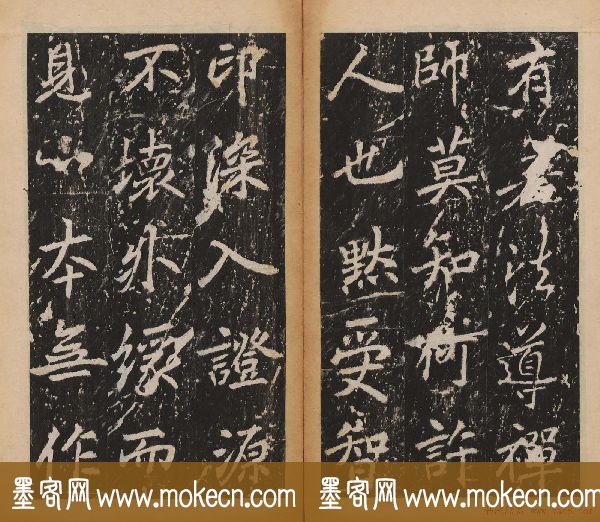 有若法導禪
師莫知何許
人也黙受智
印深入證源
不壞外緣而
見心本無作
墨客网 www.mokecn.com
墨客网 www.mokecn.com